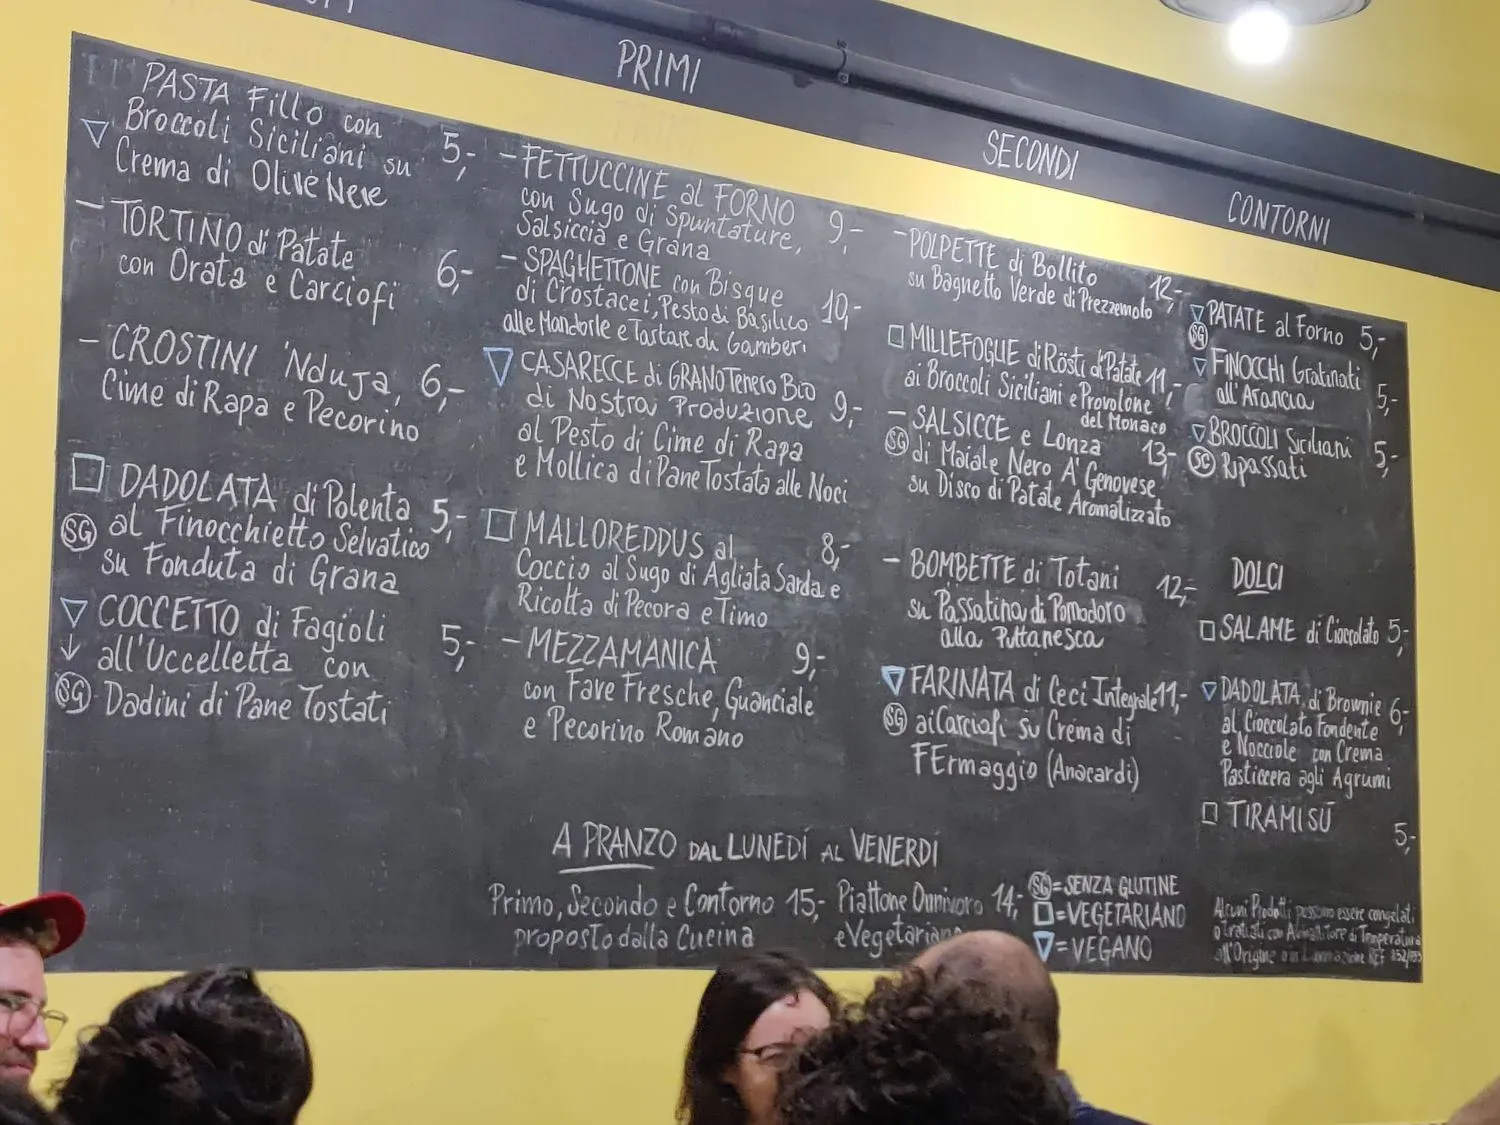 PRIMI
SECONDI
CONTORNI
PASTA Fillo con
Broccoli Siciliani su 5,-
Crema di Olive Nere
- TORTINO di Patate
con Orata e Carciofi 6,-
- CROSTINI 'Nduja, 6,-
Cime di Rapa e Pecorino
DADOLATA di Polenta 5,-
SG al Finocchietto Selvatico
su Fonduta di Grana
COCCETTO di Fagioli
↓ all'Uccelletta con 5,-
SG Dadini di Pane Tostati
- FETTUCCINE al FORNO
con Sugo di Spuntature, 9,-
Salsiccia e Grana
- SPAGHETTONE con Bisque
di Crostacei, Pesto di Basilico 10,-
alle Mandorle e Tartare di Gamberi
CASARECCE di GRANO Tenero Bio
di Nostra Produzione 9,-
al Pesto di Cime di Rapa
e Mollica di Pane Tostata alle Noci
MALLOREDDUS al 8,-
Coccio al Sugo di Agliata Sarda e
Ricotta di Pecora e Timo
- MEZZAMANICA 9,-
con Fave Fresche, Guanciale
e Pecorino Romano
- POLPETTE di Bollito 12,-
su Bagnetto Verde di Prezzemolo
MILLEFOGLIE di Rösti di Patate 11,-
ai Broccoli Siciliani e Provolone
del Monaco
- SALSICCE e Lonza 13,-
SG di Maiale Nero A' Genovese
su Disco di Patate Aromatizzato
- BOMBETTE di Totani 12,-
su Passatina di Pomodoro
alla Puttanesca
FARINATA di Ceci Integrale 11,-
SG ai Carciofi su Crema di
FErmaggio (Anacardi)
PATATE al Forno 5,-
SG
FINOCCHI Gratinati 5,-
all'Arancia
BROCCOLI Siciliani 5,-
SG Ripassati
DOLCI
SALAME di Cioccolato 5,-
DADOLATA di Brownie 6,-
al Cioccolato Fondente
e Nocciole con Crema
Pasticcera agli Agrumi
TIRAMISÚ 5,-
A PRANZO DAL LUNEDÍ AL VENERDÍ
Primo, Secondo e Contorno 15,-
proposto dalla Cucina
Piattone Onnivoro 14,-
e Vegetariano
SG = SENZA GLUTINE
= VEGETARIANO
= VEGANO
Alcuni Prodotti possono essere congelati
o trattati con Abbattitore di Temperatura
all'Origine o in REF 852/